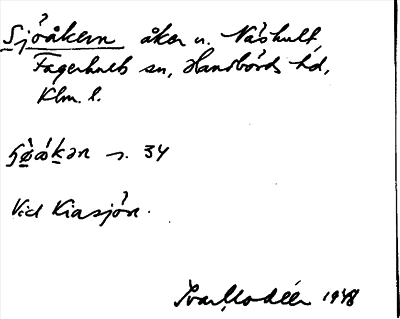 Sjöåkern åker n. Näshult,
Fagerhults sn, Handbörds hd,
Klm. l.
s. 34
Vid Kiasjön.
Ivar Modéer 1948